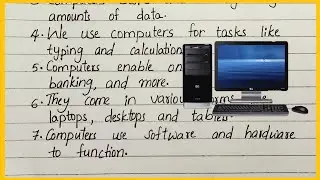 amounts of data.
4. We use computers for tasks like
typing and calculation
5. Computers enable on
banking, and more.
6. They come in various
laptops, desktops and tablet
7. Computers use software and hardware
to function.